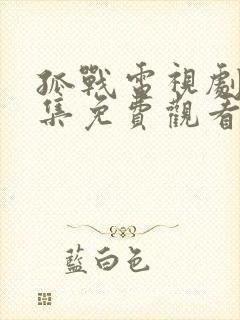 孤戰電視劇
集免費觀看
藍白色